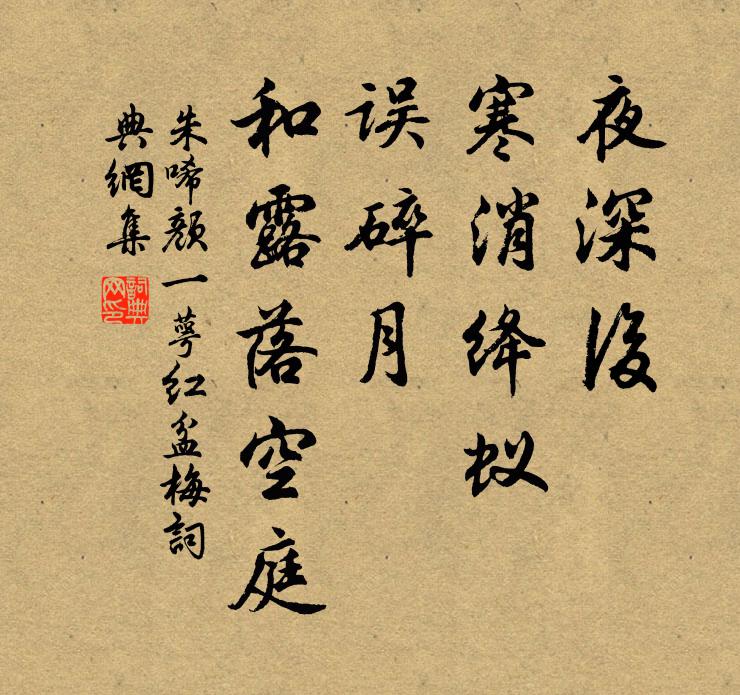 夜深後
寒消绛蚁
误碎月
和露落空庭
朱唏颜一萼红盆梅詞
典網集
詞典
网印